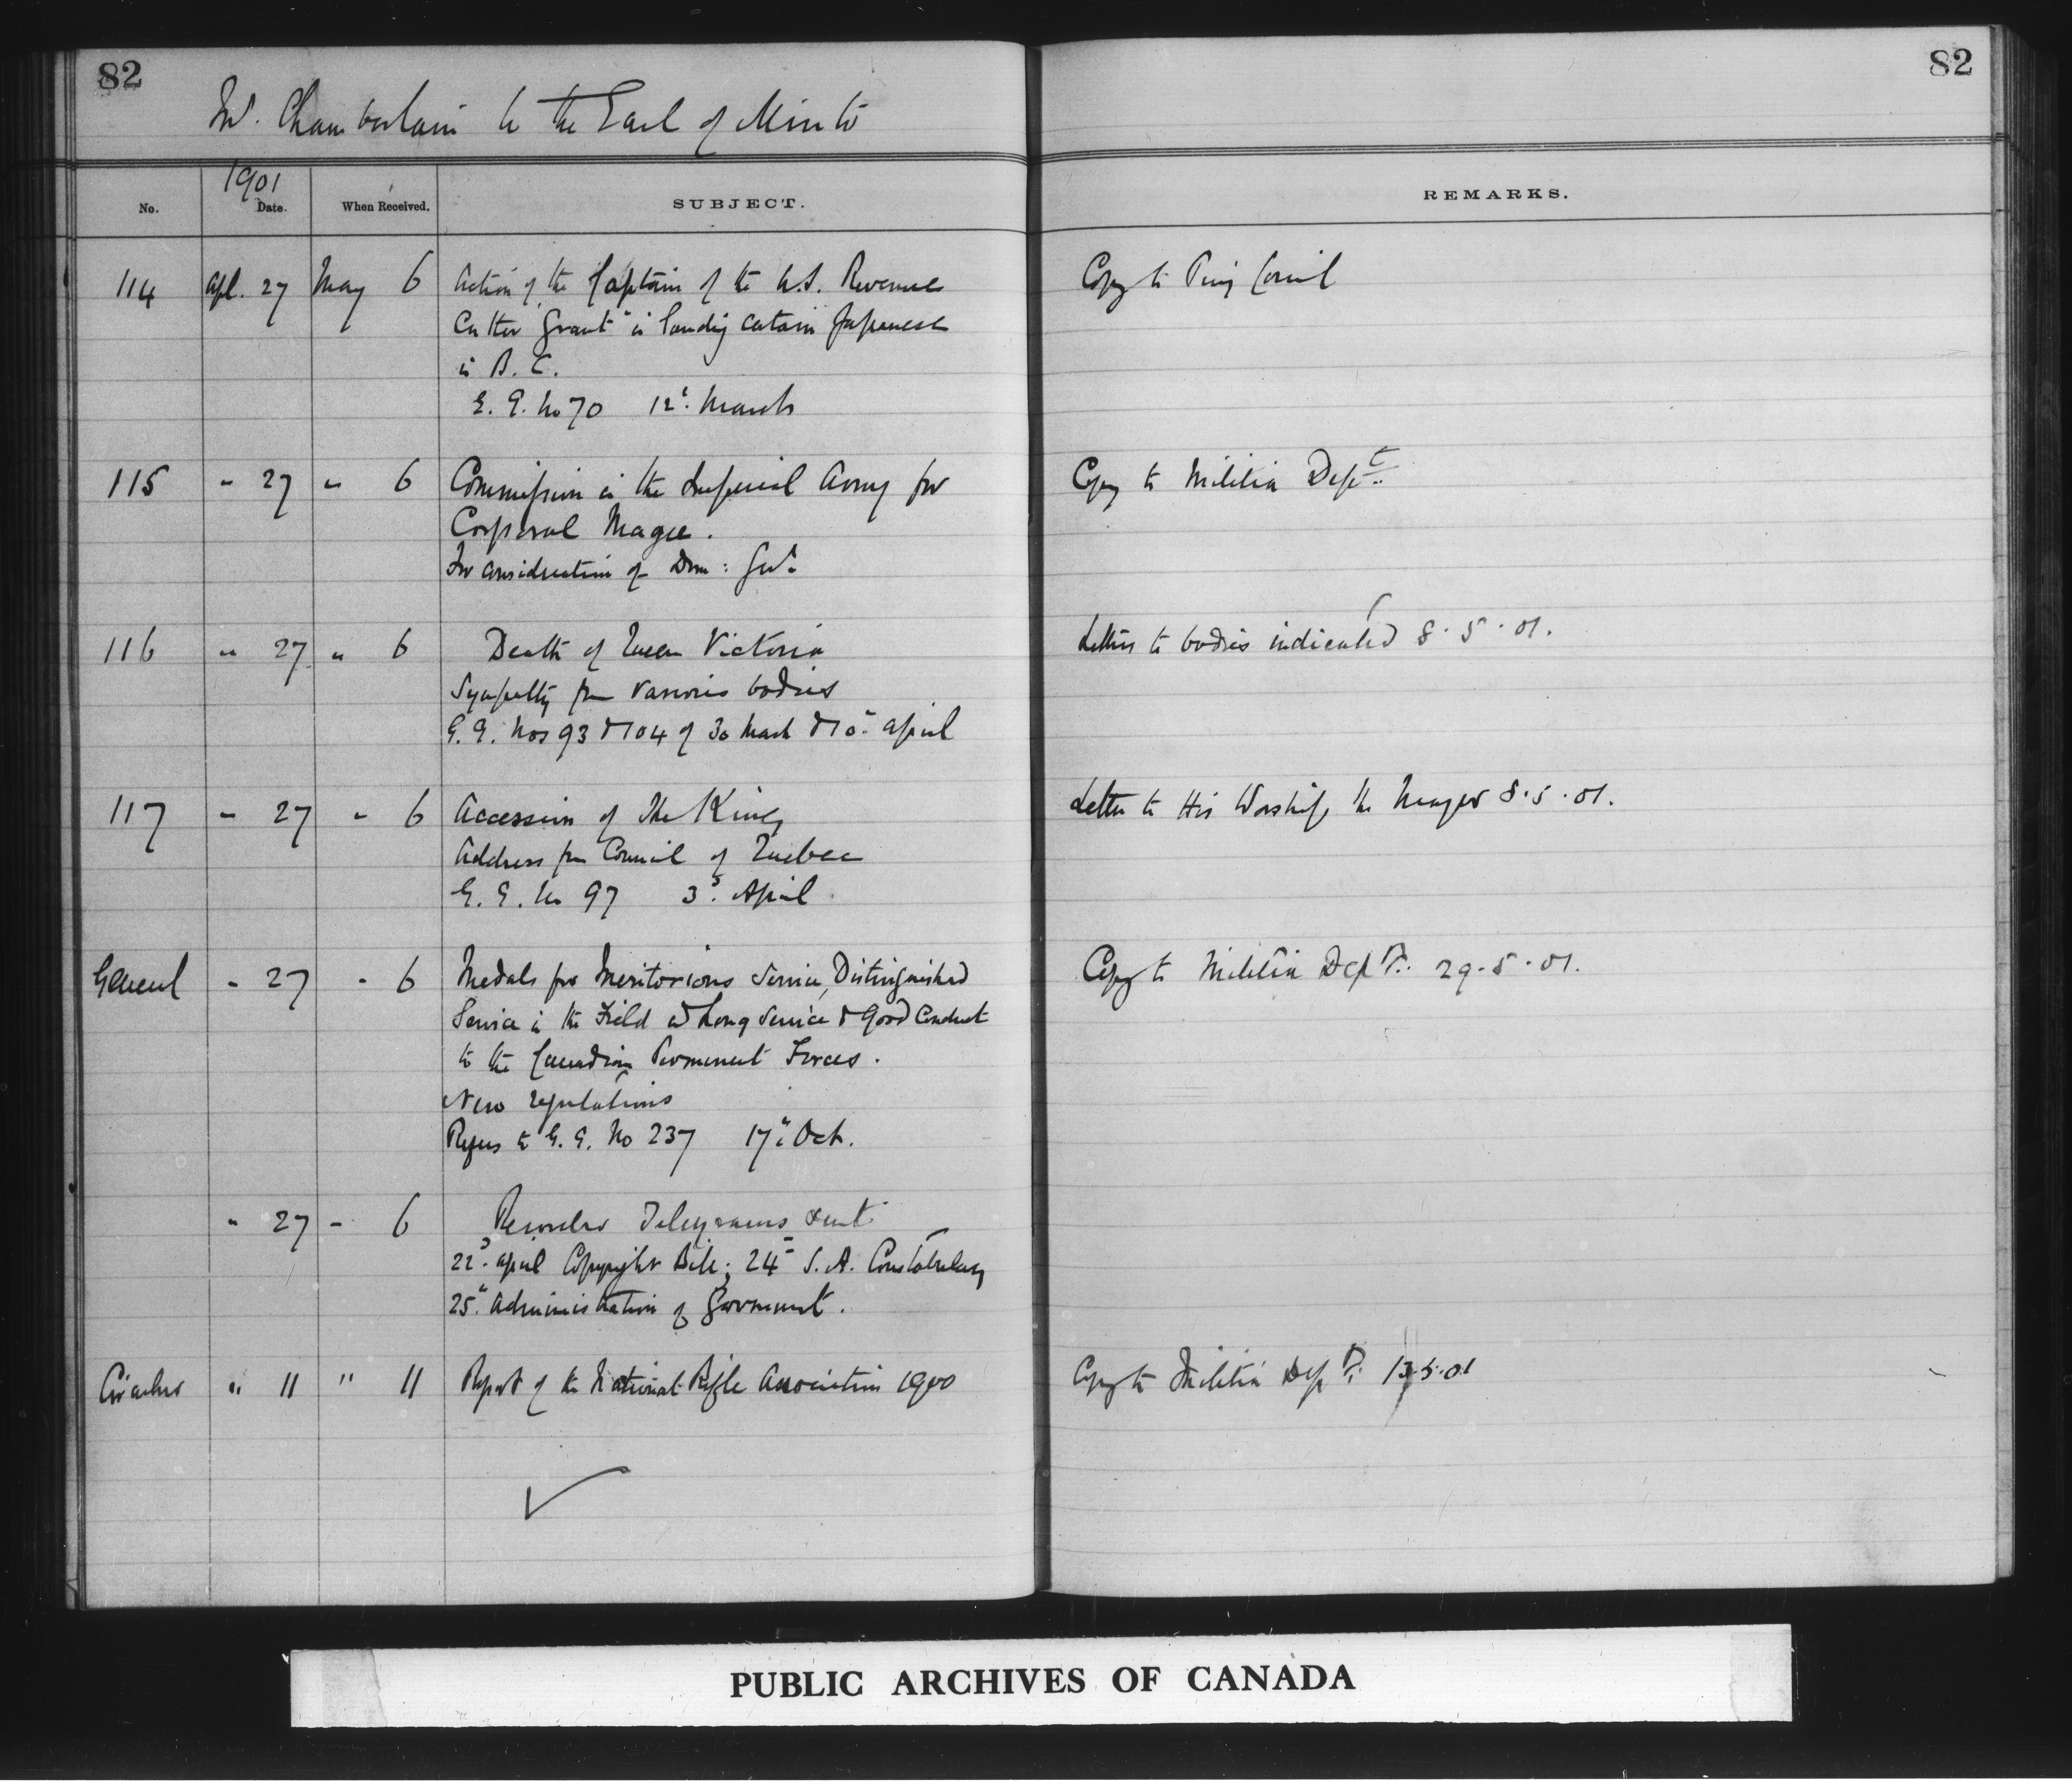 82
82
Mr. Chamberlain to the Earl of Minto
1901
No. Date. When Received. SUBJECT. REMARKS.
114 Apl. 27 May 6 Action of the Captain of the U.S. Revenue Copy to Privy Council
Cutter "Grant" in landing certain Japanese
in B.C.
G.G. No 70 12th March
115 " 27 " 6 Commission in the Imperial Army for Copy to Militia Dept.
Corporal Magee.
For consideration of Dom: Govt.
116 " 27 " 6 Death of Queen Victoria Letters to bodies indicated 8.5.01.
Sympathy from various bodies
G.G. Nos 93 & 104 of 30 March & 10th April
117 " 27 " 6 Accession of The King Letter to His Worship the Mayor 8.5.01.
Address from Council of Quebec
G.G. No 97 3d April
General " 27 " 6 Medals for Meritorious Service, Distinguished Copy to Militia Dept. 29.5.01.
Service in the Field and Long Service & Good Conduct
to the Canadian Permanent Forces.
New regulations
Refers to G.G. No 237 17th Oct.
" 27 " 6 Records Telegrams sent
22d April Copyright Bill; 24th S.A. Constabulary
25th Administration of Government.
Circular " 11 " 11 Report of the National Rifle Association 1900 Copy to Militia Dept. 13.5.01
PUBLIC ARCHIVES OF CANADA